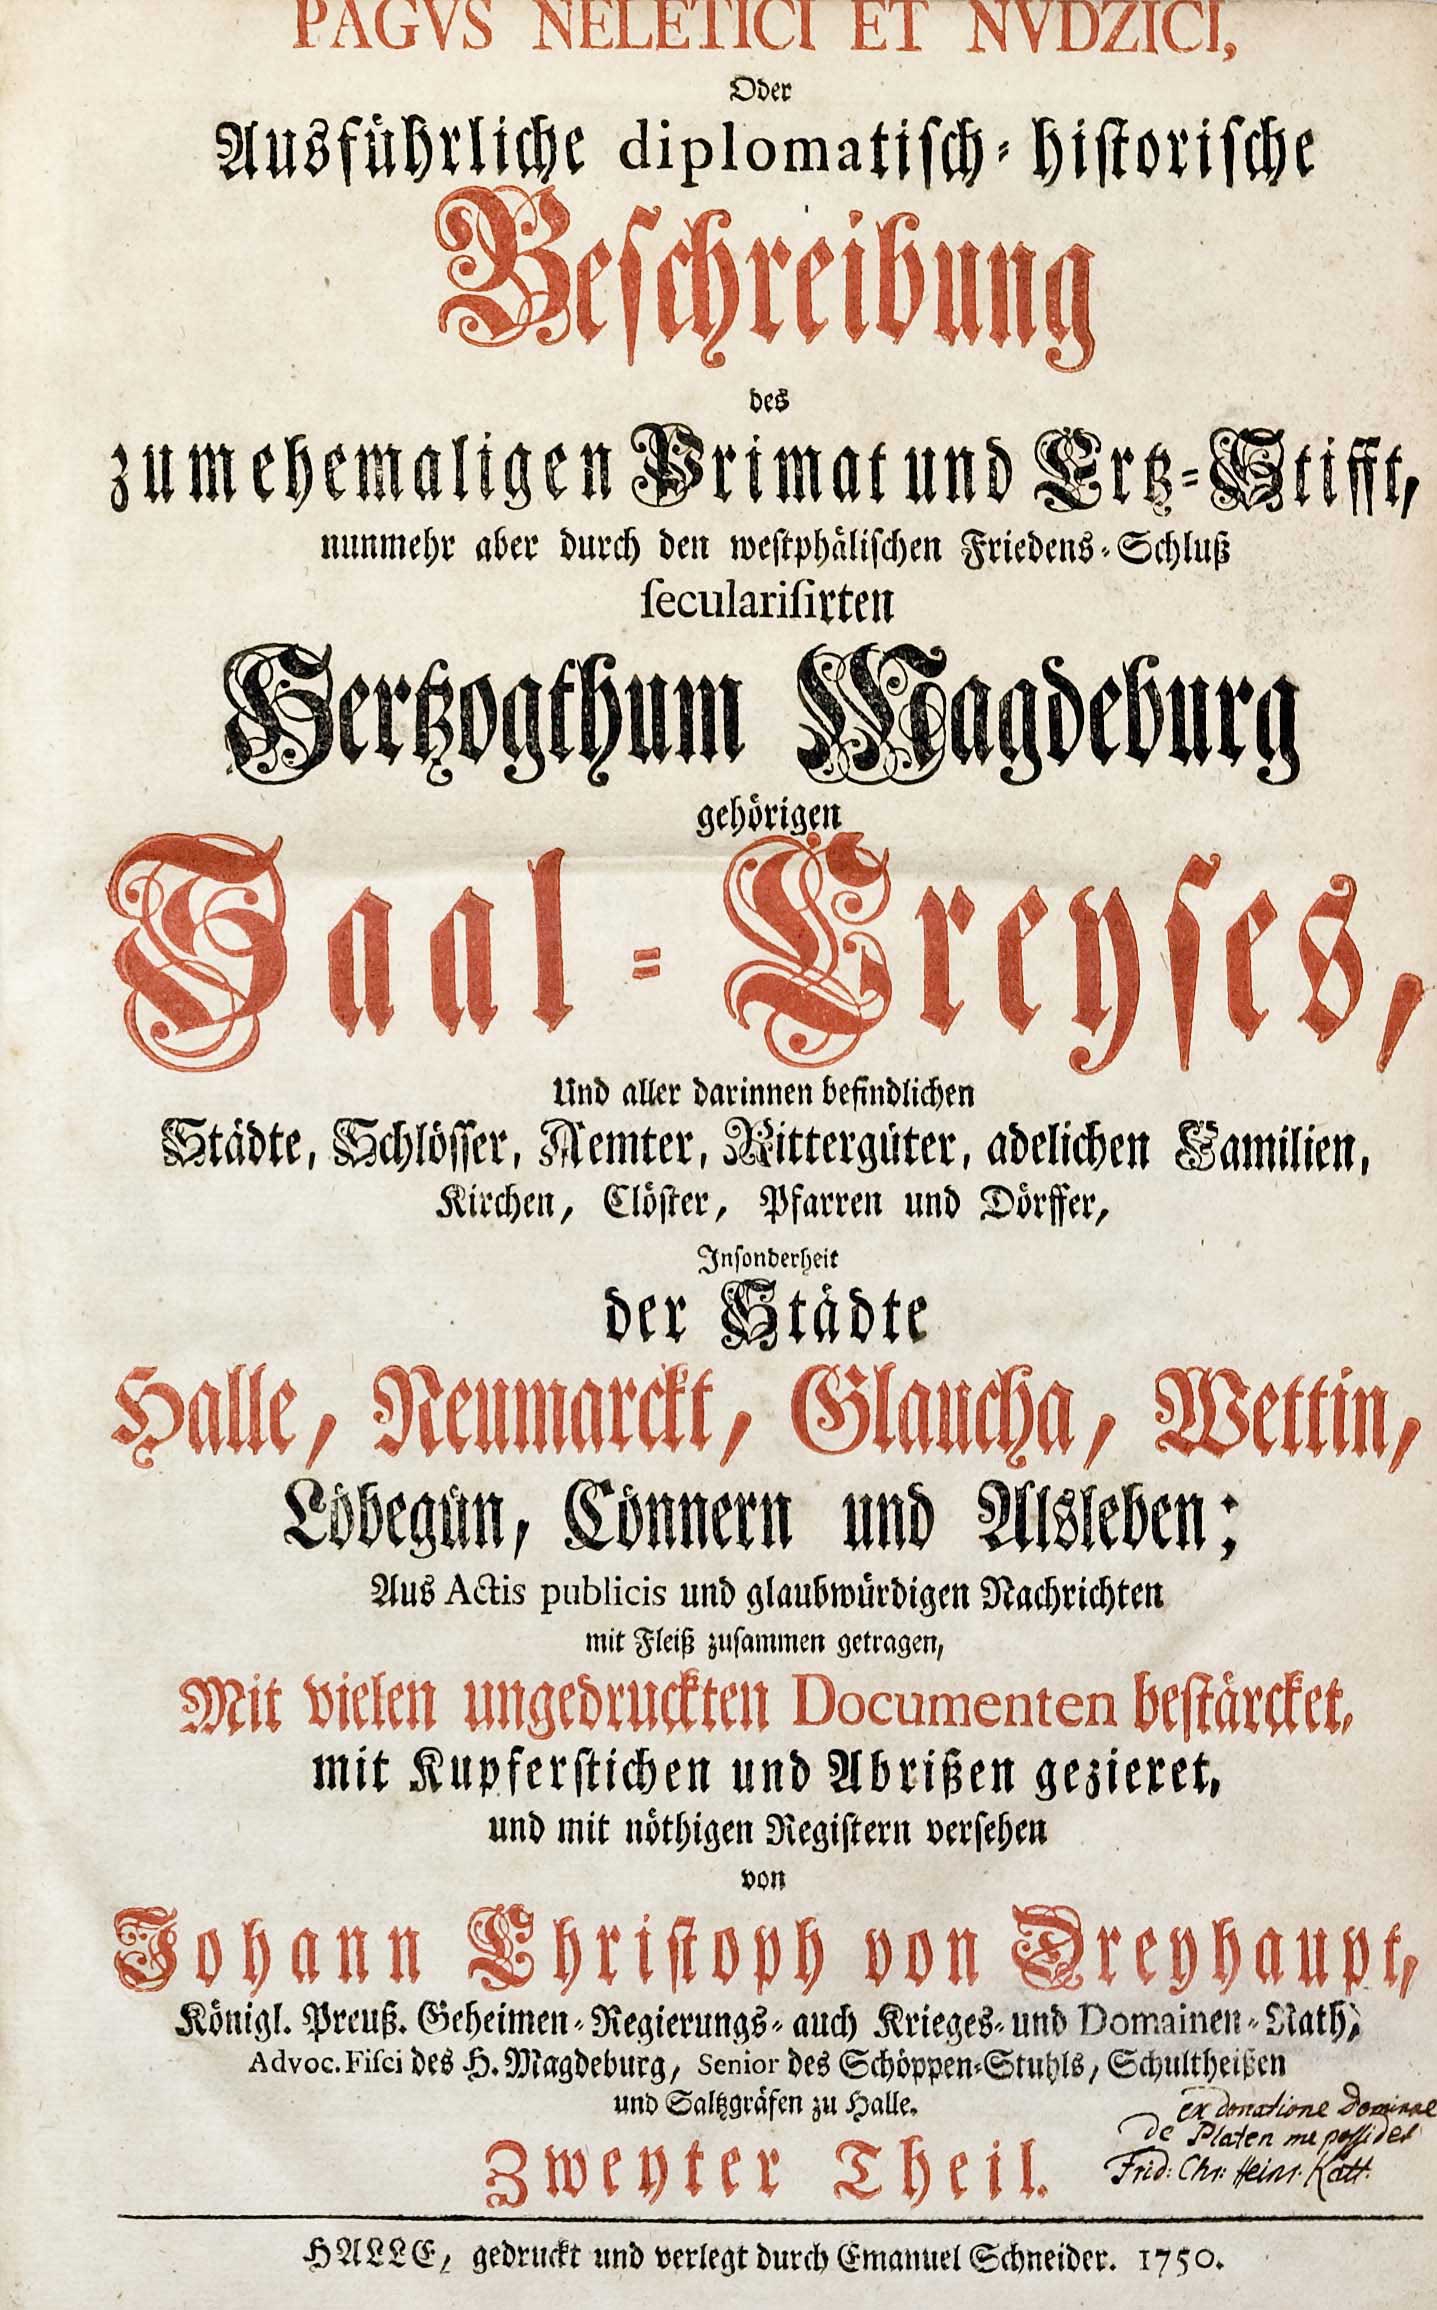 PAGVS NELETICI ET NVDZICI,
Oder
Ausführliche diplomatisch-historische
Beschreibung
des
zum ehemaligen Primat und Ertz-Stifft,
nunmehr aber durch den westphälischen Friedens-Schluß
secularisirten
Hertzogthum Magdeburg
gehörigen
Saal-Creyses,
Und aller darinnen befindlichen
Städte, Schlösser, Aemter, Rittergüter, adelichen Familien,
Kirchen, Clöster, Pfarren und Dörffer,
Insonderheit
der Städte
Halle, Neumarckt, Glaucha, Wettin,
Löbegün, Cönnern und Alsleben;
Aus Actis publicis und glaubwürdigen Nachrichten
mit Fleiß zusammen getragen,
Mit vielen ungedruckten Documenten bestärcket,
mit Kupferstichen und Abrißen gezieret,
und mit nöthigen Registern versehen
von
Johann Christoph von Dreyhaupt,
Königl. Preuß. Geheimen-Regierungs-auch Krieges-und Domainen-Rath,
Advoc. Fisci des H. Magdeburg, Senior des Schöppen-Stuhls, Schultheißen
und Saltzgräfen zu Halle.
ex donatione Dominae
de Platen me possidet
Frid: Chr: Heinr. Katt.
Zweyter Theil.
HALLE, gedruckt und verlegt durch Emanuel Schneider. 1750.